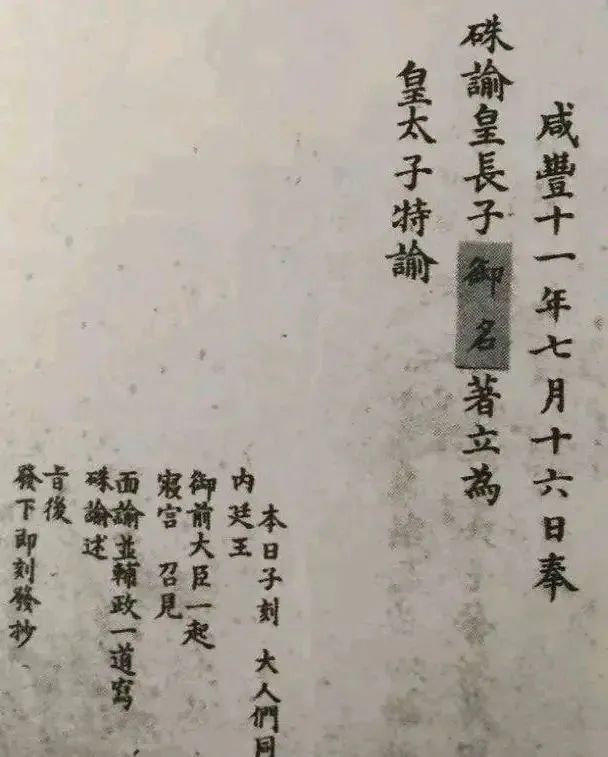 咸豐十一年七月十六日奉
硃諭皇長子御名著立為
皇太子特諭
本日子刻 大人們同
內廷王
御前大臣一起
寢宮 召見
面諭並輔政一道寫
硃諭述
旨後
發下即刻發抄